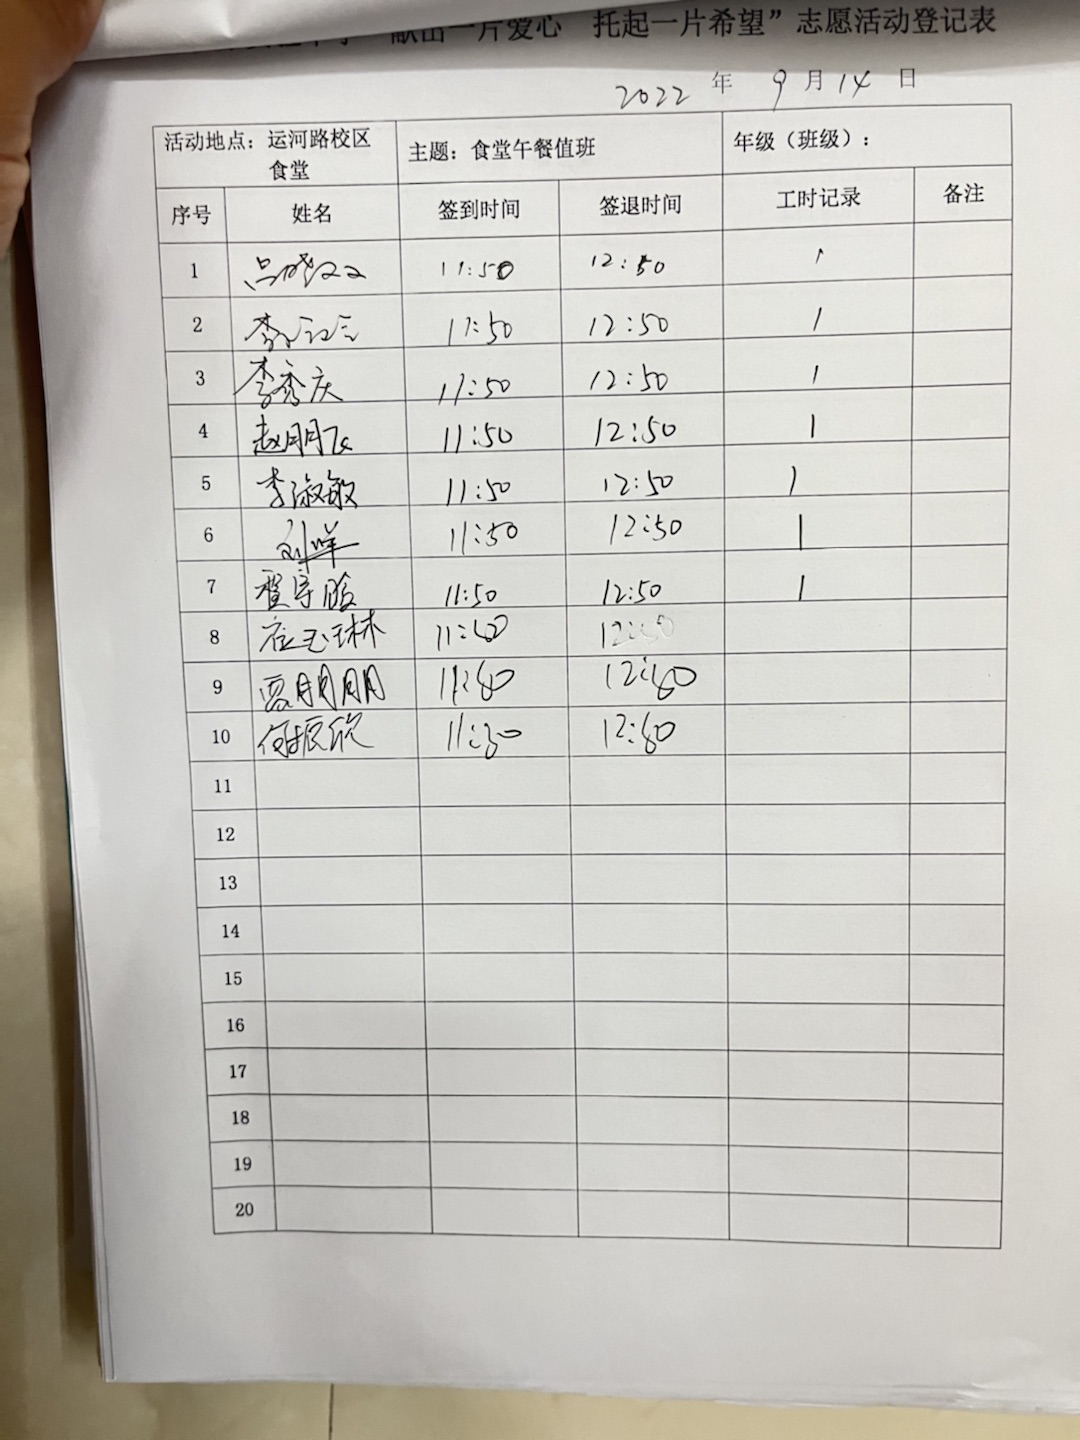 献出一片爱心 托起一片希望”志愿活动登记表
2022 年 9 月 14 日
活动地点：运河路校区食堂 主题：食堂午餐值班 年级（班级）：
序号 姓名 签到时间 签退时间 工时记录 备注
1 11:50 12:50 1
2 11:50 12:50 1
3 李秀庆 11:50 12:50 1
4 赵朋飞 11:50 12:50 1
5 李淑敏 11:50 12:50 1
6 11:50 12:50 1
7 11:50 12:50 1
8 12:50
9
10 何振欣
11
12
13
14
15
16
17
18
19
20